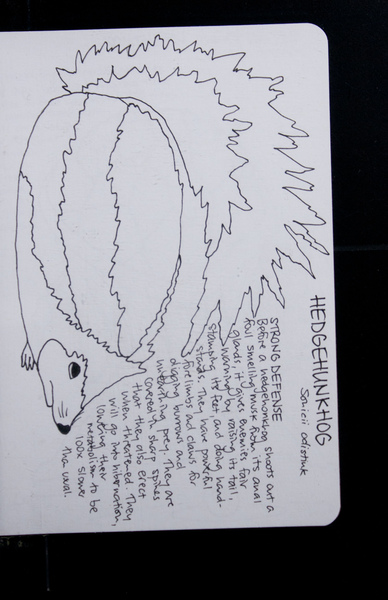 HEDGEHUNKHOG
Sonicii odistink
STRONG DEFENSE
Before a hedgehonkog shoots out a
foul smelling musk from its anal
glands, it gives enemies fair
warning by raising its tail,
stamping its feet, and doing hand-
stands. They have powerful
forelimbs and claws for
digging burrows and
unearthing prey. They are
covered in sharp spines
that they also erect
when threatened. They
will go into hibernation,
lowering their
metabolism to be
100x slower
than usual.